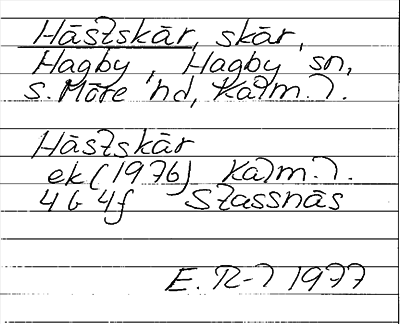 Hästskär, skär,
Hagby, Hagby sn,
S. Möre hd, Kalm. l.
Hästskär
ek (1976) Kalm. l.
4 G 4f Stassnäs
E. 1977